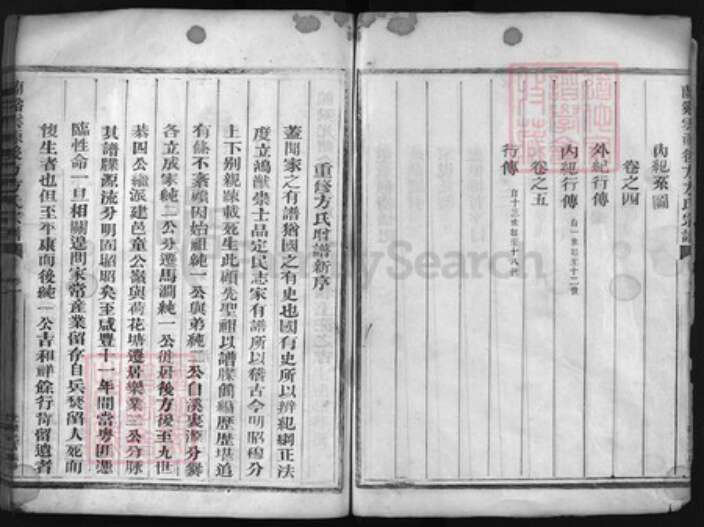 內紀系圖
卷之四
外紀行傳
內紀行傳 自一世起至十二世
卷之五
行傳 自十三世起至十八世
重修方氏宗譜新序
蓋聞家之有譜猶國之有史也國有史所以辨紀綱正法
度立鴻猷崇士品定民志家有譜所以稽古今明昭穆分
上下別親疎載死生此顧先聖祖以譜牒簡編歷歷堪追
有條不紊嶺因始祖純一公與弟純二公自溪裏源分爨
各立成家純二公分遷馬澗純一公徙居後方後至九世
恭四公繼派建邑童公嶺與荷花塘遷居樂業三公分脉
其譜牒源流分明固昭昭矣至咸豐十一年間當粵匪慿
臨性命一旦相關邊問家常產業留存自兵燹留人死而
復生者也但至平康而後純一公吉和祥餘行衛留遺者
FamilySearch